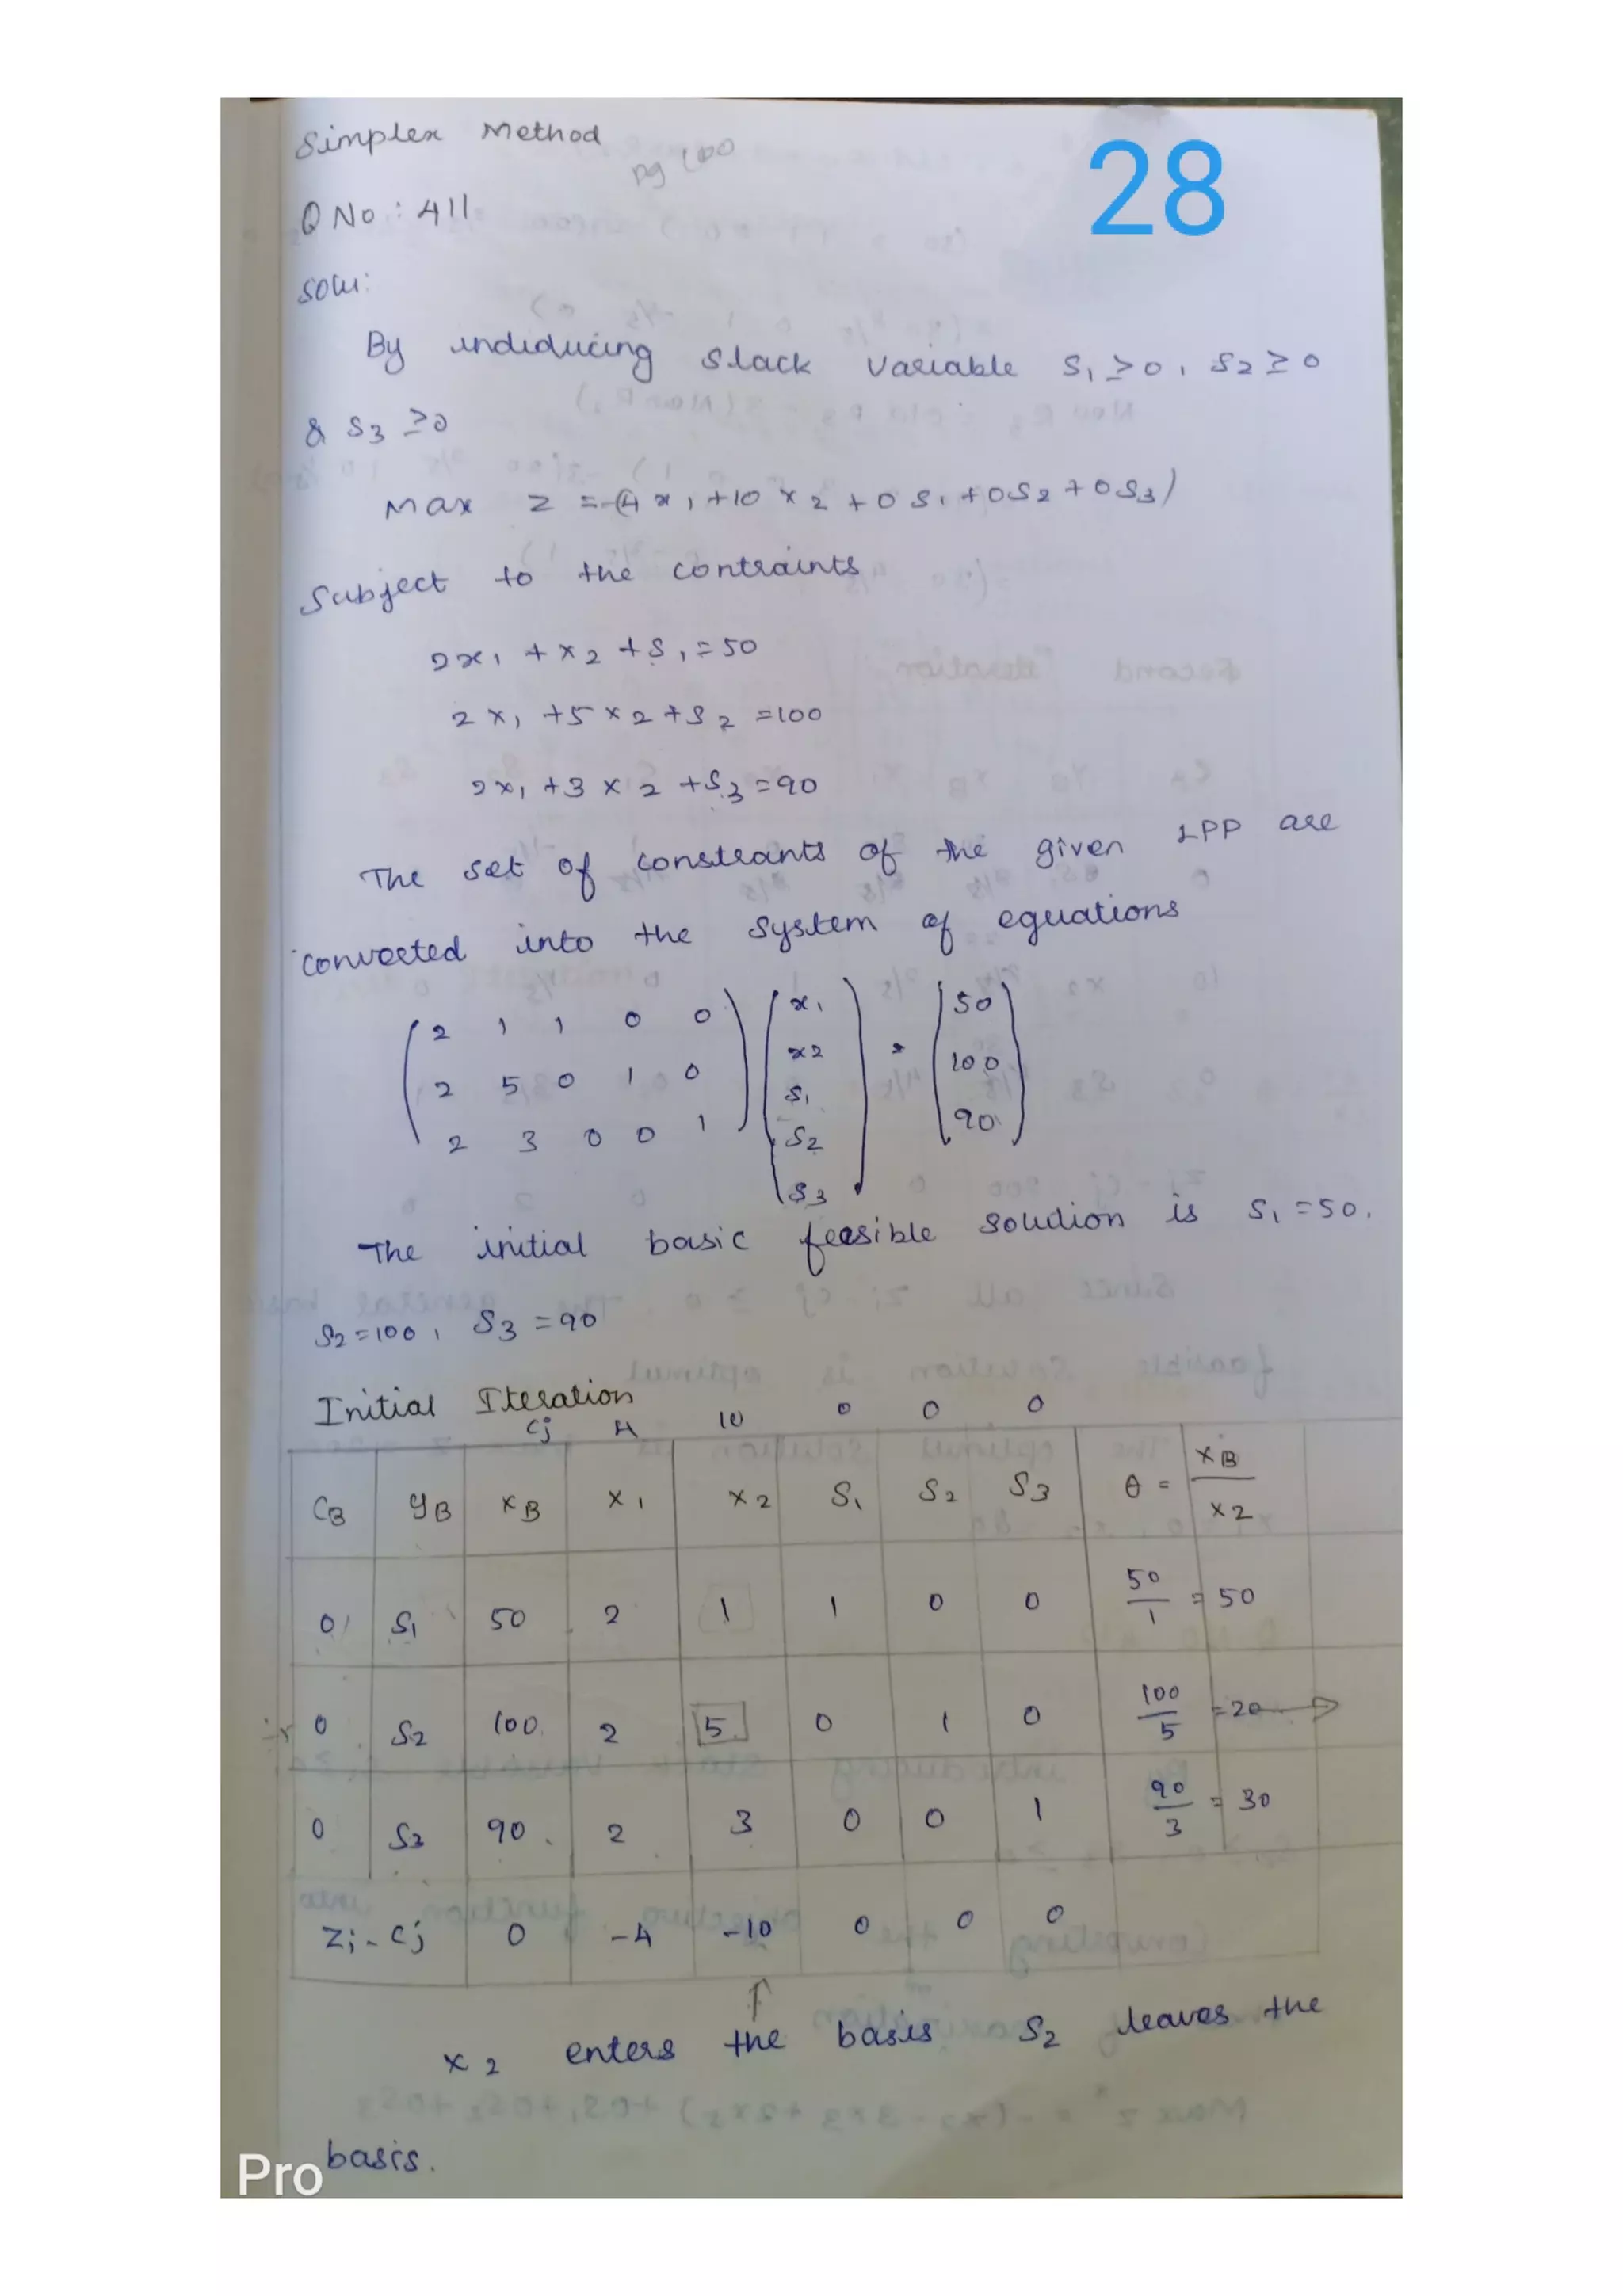 Simplex Method
pg 100
28
Q No : 411
Solu:
By indiducing slack variable S1 ≥ 0, S2 ≥ 0
& S3 ≥ 0
Max Z = -(4x1 + 10x2 + 0S1 + 0S2 + 0S3)
Subject to the contraints
2x1 + x2 + S1 = 50
2x1 + 5x2 + S2 = 100
2x1 + 3x2 + S3 = 90
The set of constrants of the given LPP are
converted into the system of equations
( 2 1 1 0 0 ) ( x1 ) = ( 50 )
2 5 0 1 0 x2 100
2 3 0 0 1 S1 90
S2
S3
The initial basic feesible solution is S1 = 50,
S2 = 100, S3 = 90
Initial Iteration
Cj 4 10 0 0 0
CB yB xB x1 x2 S1 S2 S3 θ = xB / x2
0 S1 50 2 1 1 0 0 50/1 = 50
0 S2 100 2 5 0 1 0 100/5 = 20 →
0 S2 90 2 3 0 0 1 90/3 = 30
Zj - Cj 0 -4 -10 0 0 0
↑
x2 enters the basis S2 leaves the
basis.
Pro